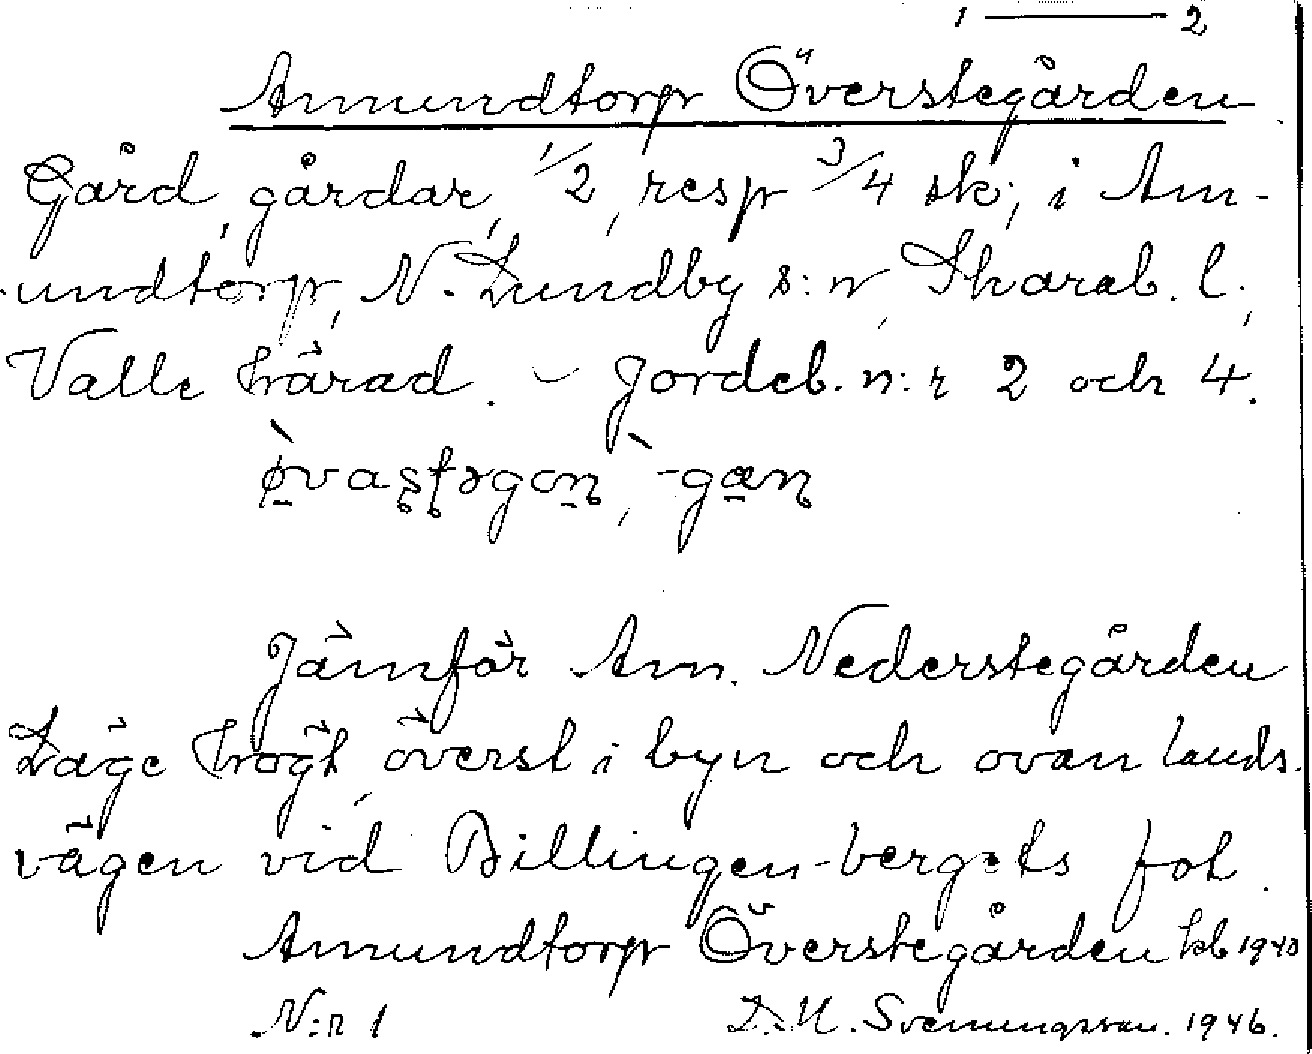 1 — 2
Amundtorp Överstegården
Gård, gårdar, 1/2, resp 3/4 sk; i Am-
undtorp, N. Lundby s:n, Skarab. l.,
Valle härad. – Jordeb. n:r 2 och 4.
Jämför Am. Nederstegården
Läge högt, överst i byn och ovan lands-
vägen vid Billingen-bergets fot.
Amundtorp Överstegården kb 1940
N:r 1 D. M. Svenungsson. 1946.